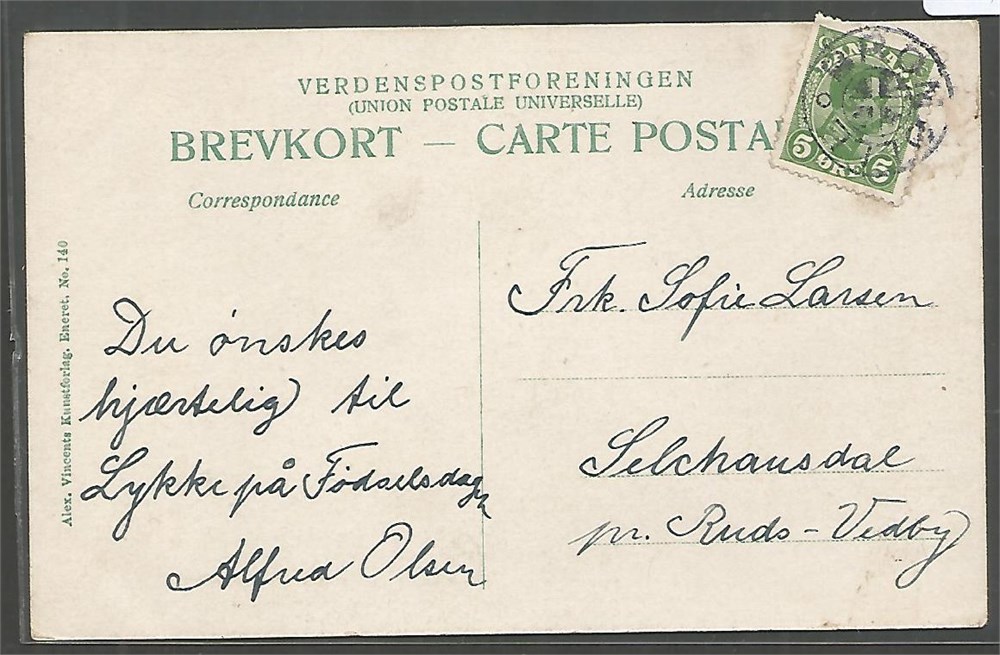 VERDENSPOSTFORENINGEN
(UNION POSTALE UNIVERSELLE)
BREVKORT — CARTE POSTA
Correspondance
Adresse
DANMARK
5 ØRE 5
Alex. Vincents Kunstforlag. Eneret. No. 140
Du ønskes
hjærtelig til
Lykke på Fødselsdagen
Alfred Olsen
Frk. Sofie Larsen
Selchausdal
pr. Ruds-Vedby